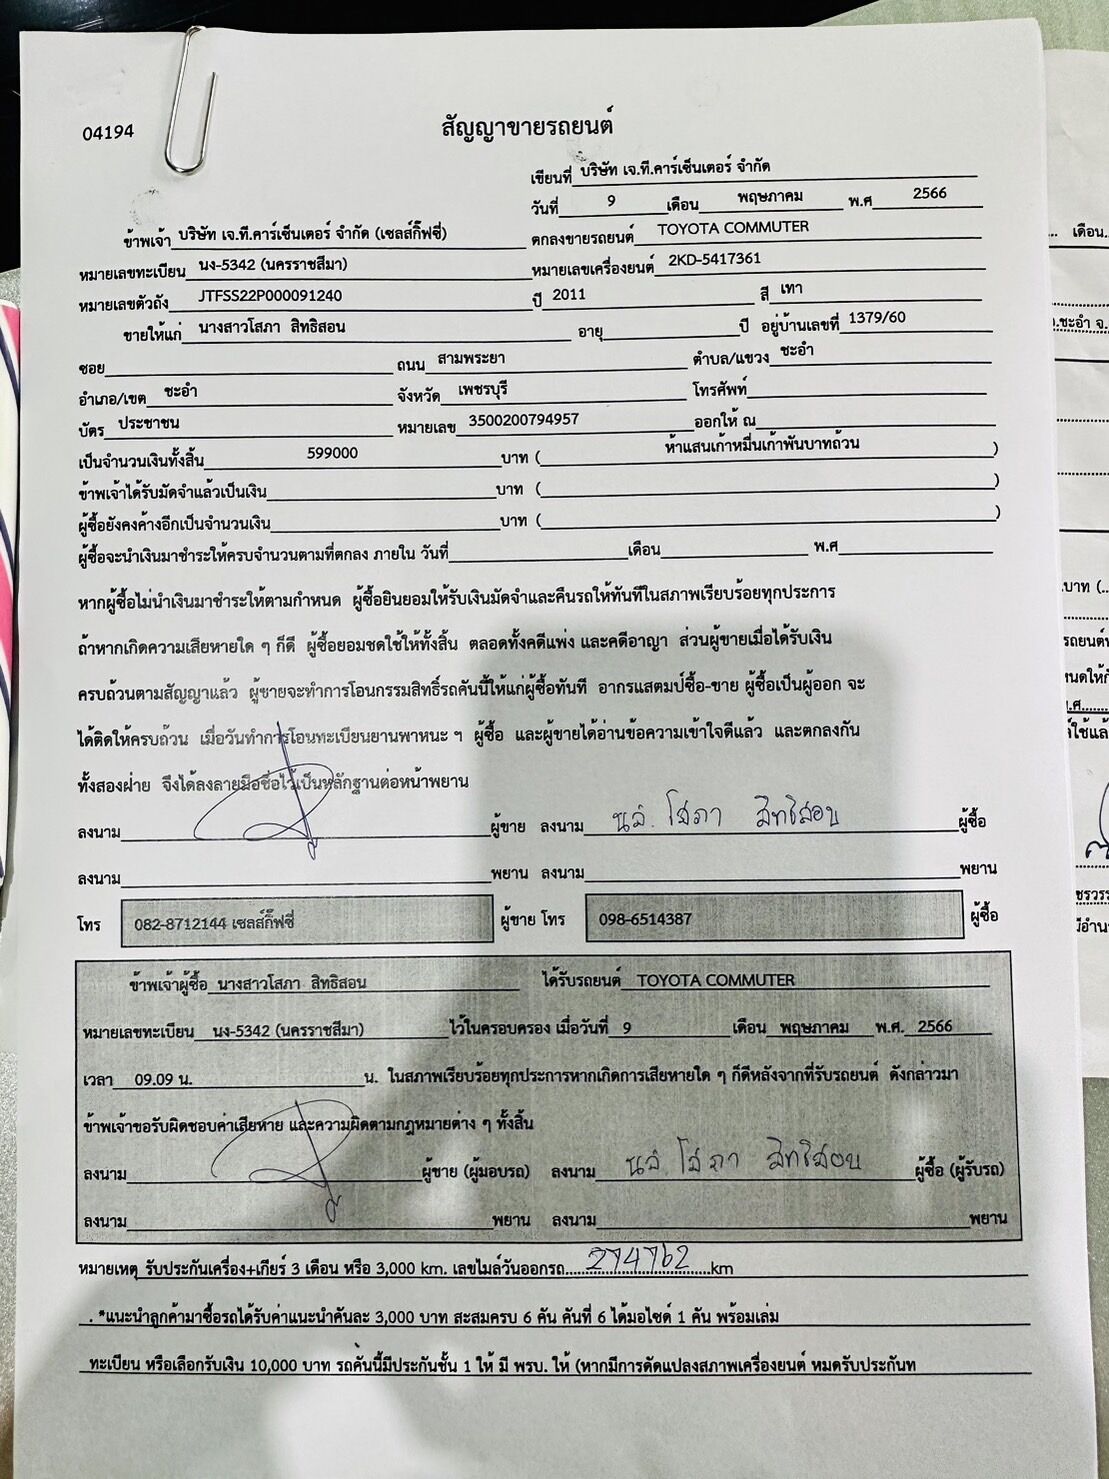 04194
สัญญาขายรถยนต์
เขียนที่ บริษัท เจ.ที.คาร์เซ็นเตอร์ จำกัด
วันที่ 9 เดือน พฤษภาคม พ.ศ 2566
ข้าพเจ้า บริษัท เจ.ที.คาร์เซ็นเตอร์ จำกัด (เซลส์กิ๊ฟซี่) ตกลงขายรถยนต์ TOYOTA COMMUTER
หมายเลขทะเบียน นง-5342 (นครราชสีมา) หมายเลขเครื่องยนต์ 2KD-5417361
หมายเลขตัวถัง JTFSS22P000091240 ปี 2011 สี เทา
ขายให้แก่ นางสาวโสภา สิทธิสอน อายุ ปี อยู่บ้านเลขที่ 1379/60
ซอย ถนน สามพระยา ตำบล/แขวง ชะอำ
อำเภอ/เขต ชะอำ จังหวัด เพชรบุรี โทรศัพท์
บัตร ประชาชน หมายเลข 3500200794957 ออกให้ ณ
เป็นจำนวนเงินทั้งสิ้น 599000 บาท ( ห้าแสนเก้าหมื่นเก้าพันบาทถ้วน )
ข้าพเจ้าได้รับมัดจำแล้วเป็นเงิน บาท ( )
ผู้ซื้อยังคงค้างอีกเป็นจำนวนเงิน บาท ( )
ผู้ซื้อจะนำเงินมาชำระให้ครบจำนวนตามที่ตกลง ภายใน วันที่ เดือน พ.ศ
หากผู้ซื้อไม่นำเงินมาชำระให้ตามกำหนด ผู้ซื้อยินยอมให้รับเงินมัดจำและคืนรถให้ทันทีในสภาพเรียบร้อยทุกประการ
ถ้าหากเกิดความเสียหายใด ๆ ก็ดี ผู้ซื้อยอมชดใช้ให้ทั้งสิ้น ตลอดทั้งคดีแพ่ง และคดีอาญา ส่วนผู้ขายเมื่อได้รับเงิน
ครบถ้วนตามสัญญาแล้ว ผู้ขายจะทำการโอนกรรมสิทธิ์รถคันนี้ให้แก่ผู้ซื้อทันที อากรแสตมป์ซื้อ-ขาย ผู้ซื้อเป็นผู้ออก จะ
ได้ติดให้ครบถ้วน เมื่อวันทำการโอนทะเบียนยานพาหนะ ฯ ผู้ซื้อ และผู้ขายได้อ่านข้อความเข้าใจดีแล้ว และตกลงกัน
ทั้งสองฝ่าย จึงได้ลงลายมือชื่อไว้เป็นหลักฐานต่อหน้าพยาน
ลงนาม ผู้ขาย ลงนาม นส. โสภา สิทธิสอน ผู้ซื้อ
ลงนาม พยาน ลงนาม พยาน
โทร 082-8712144 เซลส์กิ๊ฟซี่ ผู้ขาย โทร 098-6514387 ผู้ซื้อ
ข้าพเจ้าผู้ซื้อ นางสาวโสภา สิทธิสอน ได้รับรถยนต์ TOYOTA COMMUTER
หมายเลขทะเบียน นง-5342 (นครราชสีมา) ไว้ในครอบครอง เมื่อวันที่ 9 เดือน พฤษภาคม พ.ศ. 2566
เวลา 09.09 น. น. ในสภาพเรียบร้อยทุกประการหากเกิดการเสียหายใด ๆ ก็ดีหลังจากที่รับรถยนต์ ดังกล่าวมา
ข้าพเจ้าขอรับผิดชอบค่าเสียหาย และความผิดตามกฎหมายต่าง ๆ ทั้งสิ้น
ลงนาม ผู้ขาย (ผู้มอบรถ) ลงนาม นส โสภา สิทธิสอน ผู้ซื้อ (ผู้รับรถ)
ลงนาม พยาน ลงนาม พยาน
หมายเหตุ รับประกันเครื่อง+เกียร์ 3 เดือน หรือ 3,000 km. เลขไมล์วันออกรถ.....274762.....km
. *แนะนำลูกค้ามาซื้อรถได้รับค่าแนะนำคันละ 3,000 บาท สะสมครบ 6 คัน คันที่ 6 ได้มอไซด์ 1 คัน พร้อมเล่ม
ทะเบียน หรือเลือกรับเงิน 10,000 บาท รถคันนี้มีประกันชั้น 1 ให้ มี พรบ. ให้ (หากมีการดัดแปลงสภาพเครื่องยนต์ หมดรับประกันท